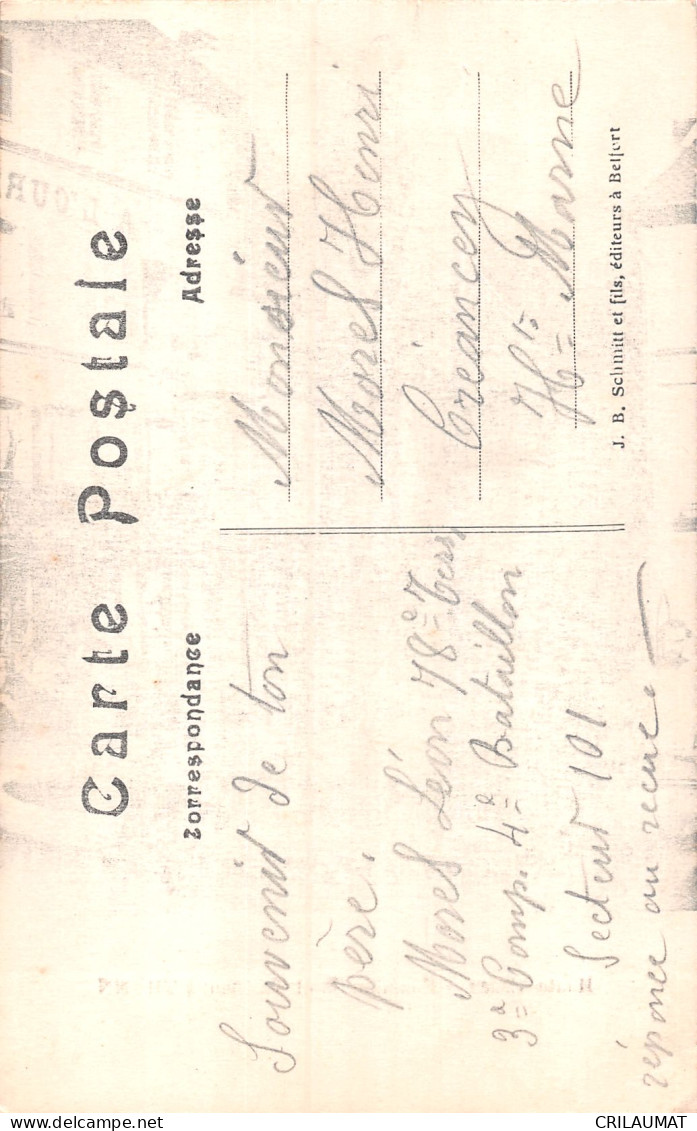 Carte Postale
Correspondance
Adresse
Souvenir de ton
père.
Morel Léon 78e Terr
3e Comp. 4e Bataillon
Secteur 101
réponce au recue
Monsieur
Morel Henri
Créancey
Hte Marne
J. B. Schmitt et fils, éditeurs à Belfort
A L'OUR
CRILAUMAT